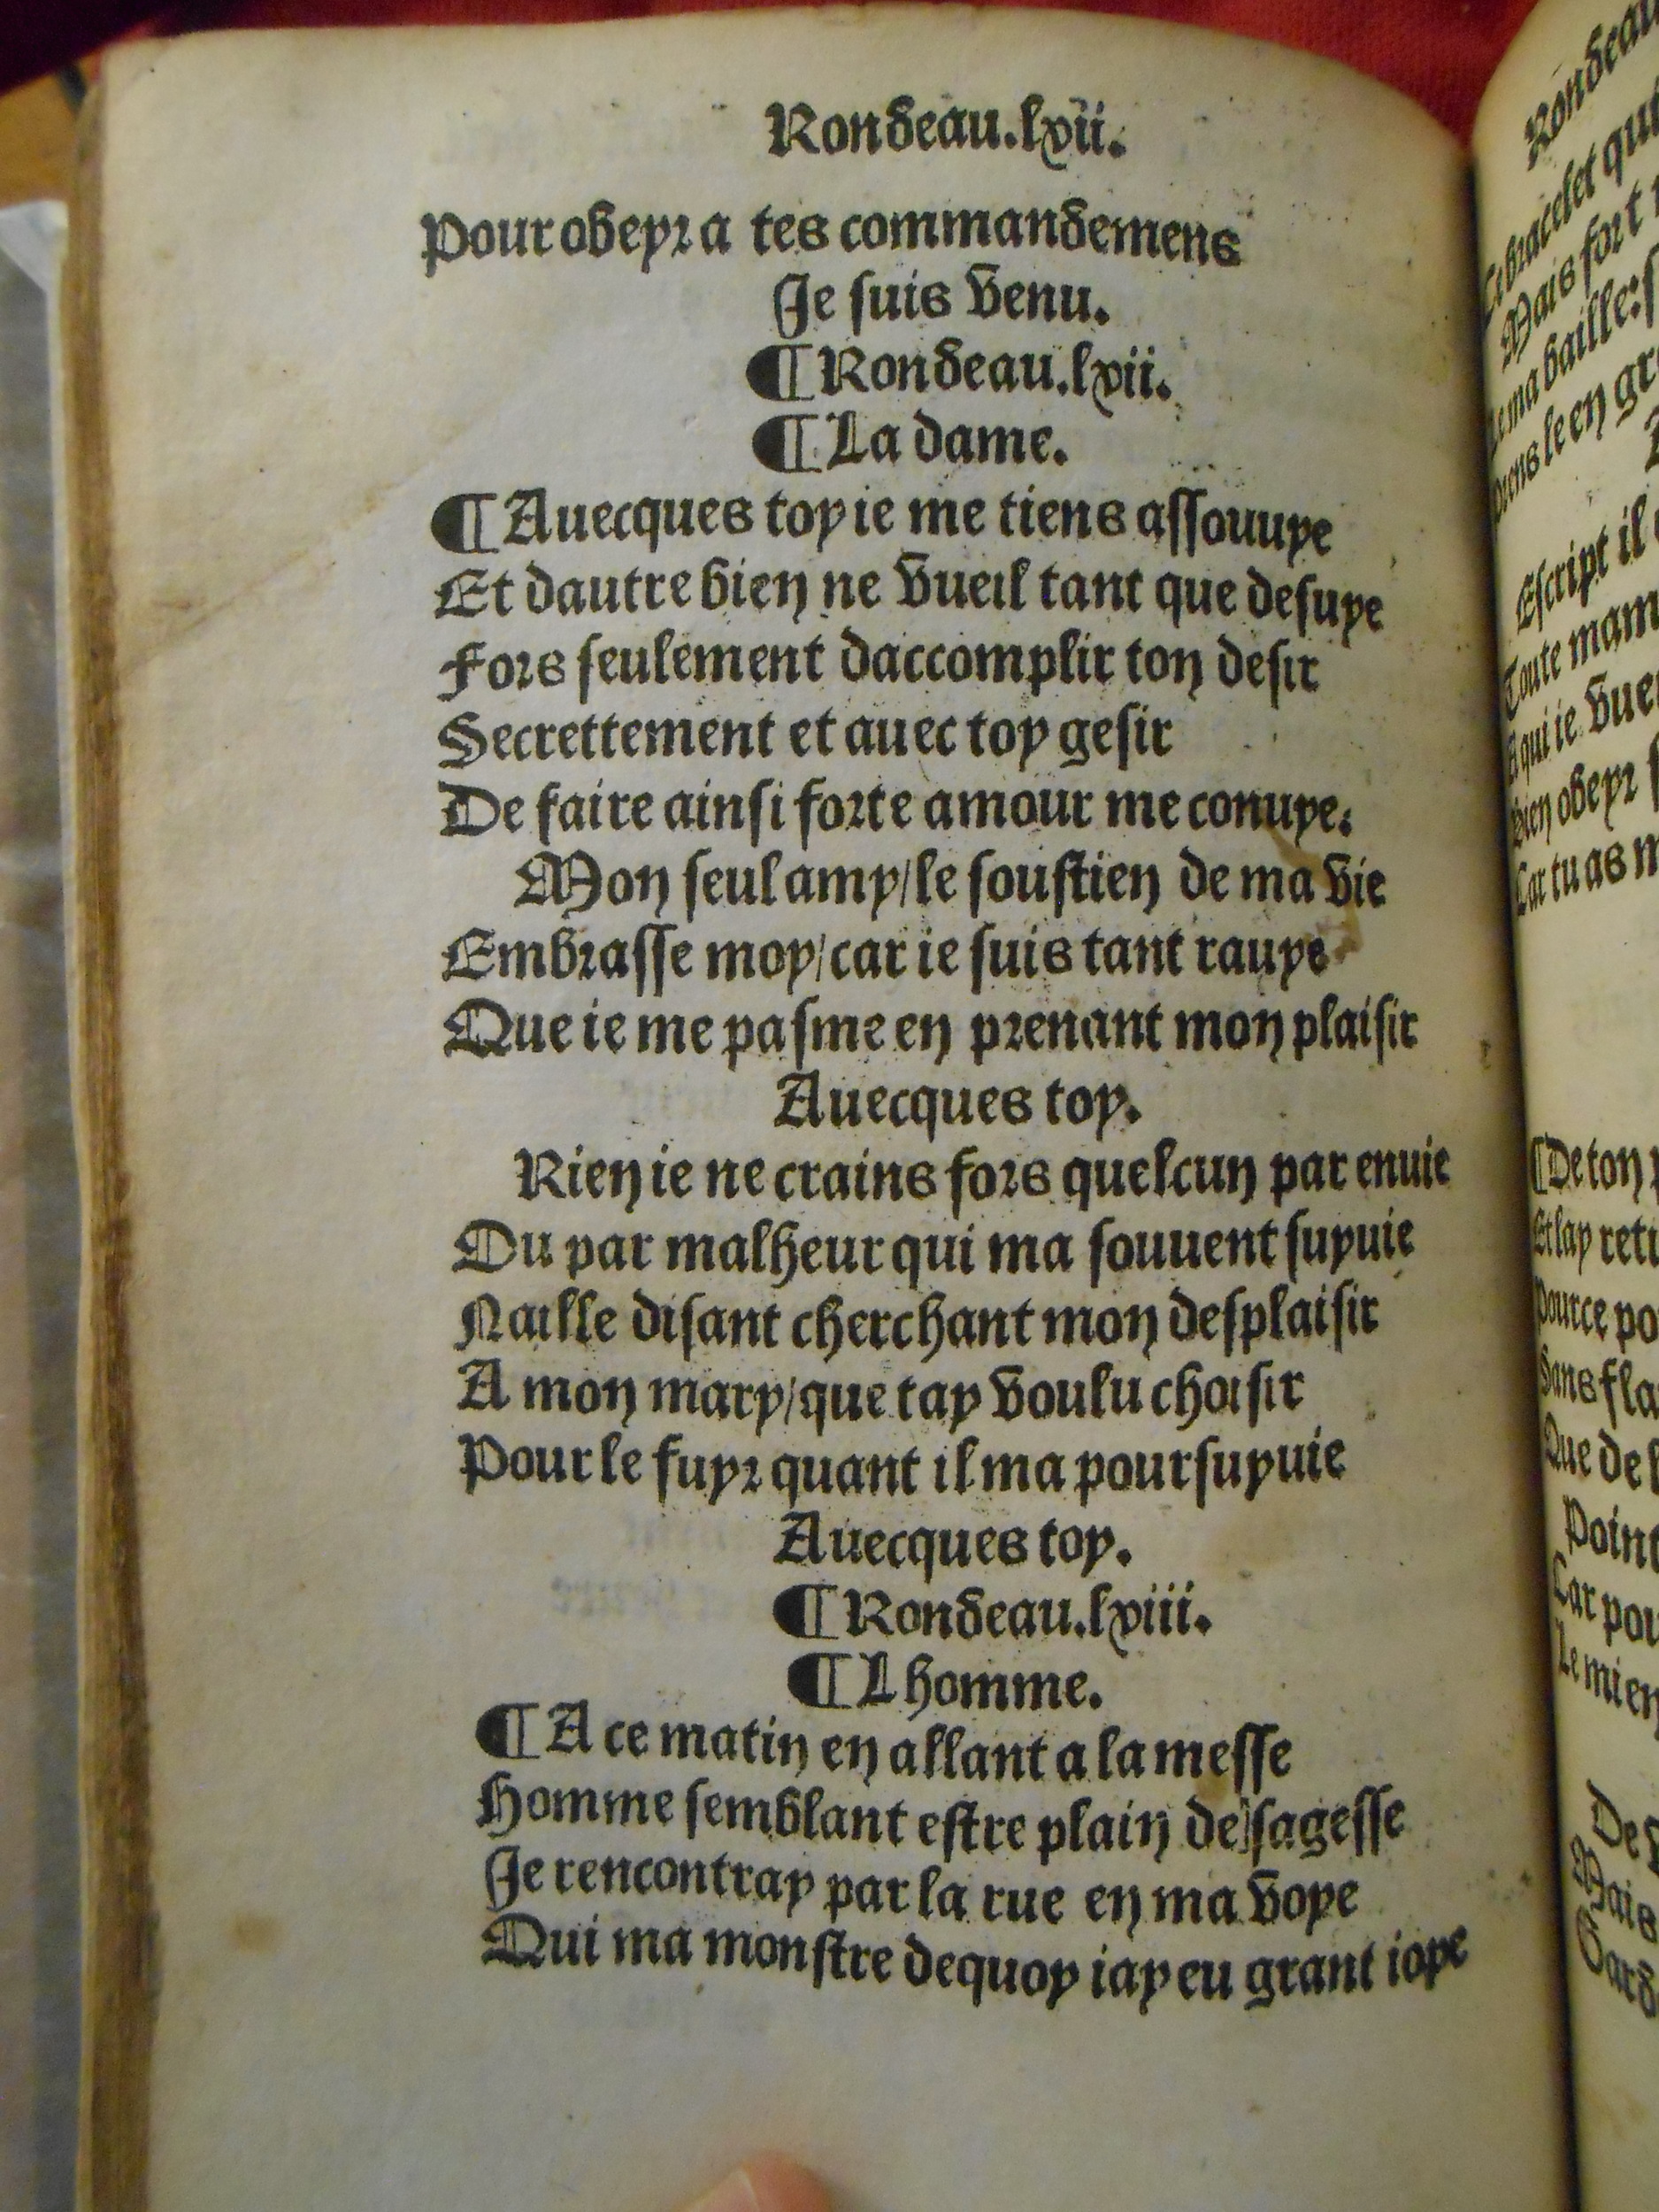 Rondeau.lxvii.
Pour obeyr a tes commandemens
Je suis venu.
¶Rondeau.lxvii.
¶La dame.
¶Auecques toy ie me tiens assouuye
Et dautre bien ne vueil tant que desuye
Fors seulement daccomplir ton desir
Secrettement et auec toy gesir
De faire ainsi forte amour me conuye.
Mon seul amy/le soustien de ma vie
Embrasse moy/car ie suis tant rauye
Que ie me pasme en prenant mon plaisir
Auecques toy.
Rien ie ne crains fors quelcun par enuie
Ou par malheur qui ma souuent suyuie
Naille disant cherchant mon desplaisir
A mon mary/que tay voulu choisir
Pour le fuyr quant il ma poursuyuie
Auecques toy.
¶Rondeau.lxviii.
¶Lhomme.
¶A ce matin en allant a la messe
Homme semblant estre plain de sagesse
Je rencontray par la rue en ma voye
Qui ma monstre dequoy iay eu grant ioye
Rondeau
bracelet qui
Mais fort
ma baille:
prens le en
Escript il
Toute
A qui ie
Bien obeyr
Car tu as
¶De ton
Et lay
Pource
Sans
Que de
Point
Car
Le mien
De
Mais